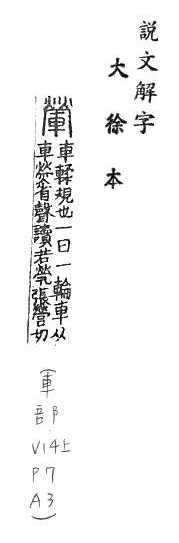 説文解字
大徐本
車輮規也一曰一輪車从
車熒省聲讀若煢渠營切
(車部
V14上
P7
A3)